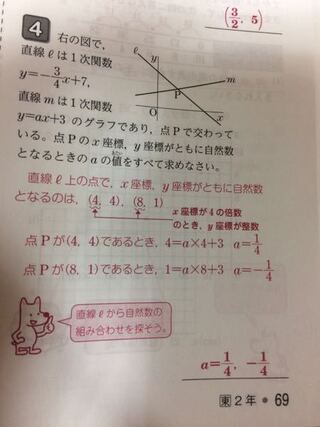 (3/2, 5)
4 右の図で，
直線ℓは1次関数
y=-3/4x+7,
直線mは1次関数
y=ax+3 のグラフであり，点Pで交わって
いる。点Pのx座標，y座標がともに自然数
となるときのaの値をすべて求めなさい。
ℓ y
m
P
O x
直線ℓ上の点で，x座標，y座標がともに自然数
となるのは，(4, 4)，(8, 1)
x座標が4の倍数
のとき，y座標が整数
点Pが(4, 4)であるとき，4=a×4+3 a=1/4
点Pが(8, 1)であるとき，1=a×8+3 a=-1/4
直線ℓから自然数の
組み合わせを探そう。
a=1/4, -1/4
東2年・69